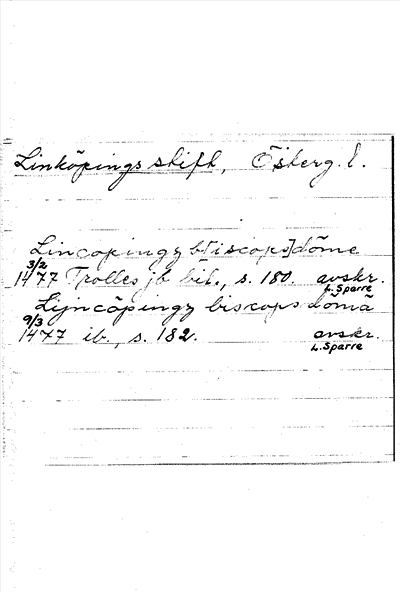 Linköpings stift, Österg. l.
Lincopingz b[iscops]döme
3/2
1477 Trolles jb bil., s. 180. avskr.
L. Sparre
Lijncöpingz biscops dömä
9/3
1477 ib., s. 182. avskr.
L. Sparre